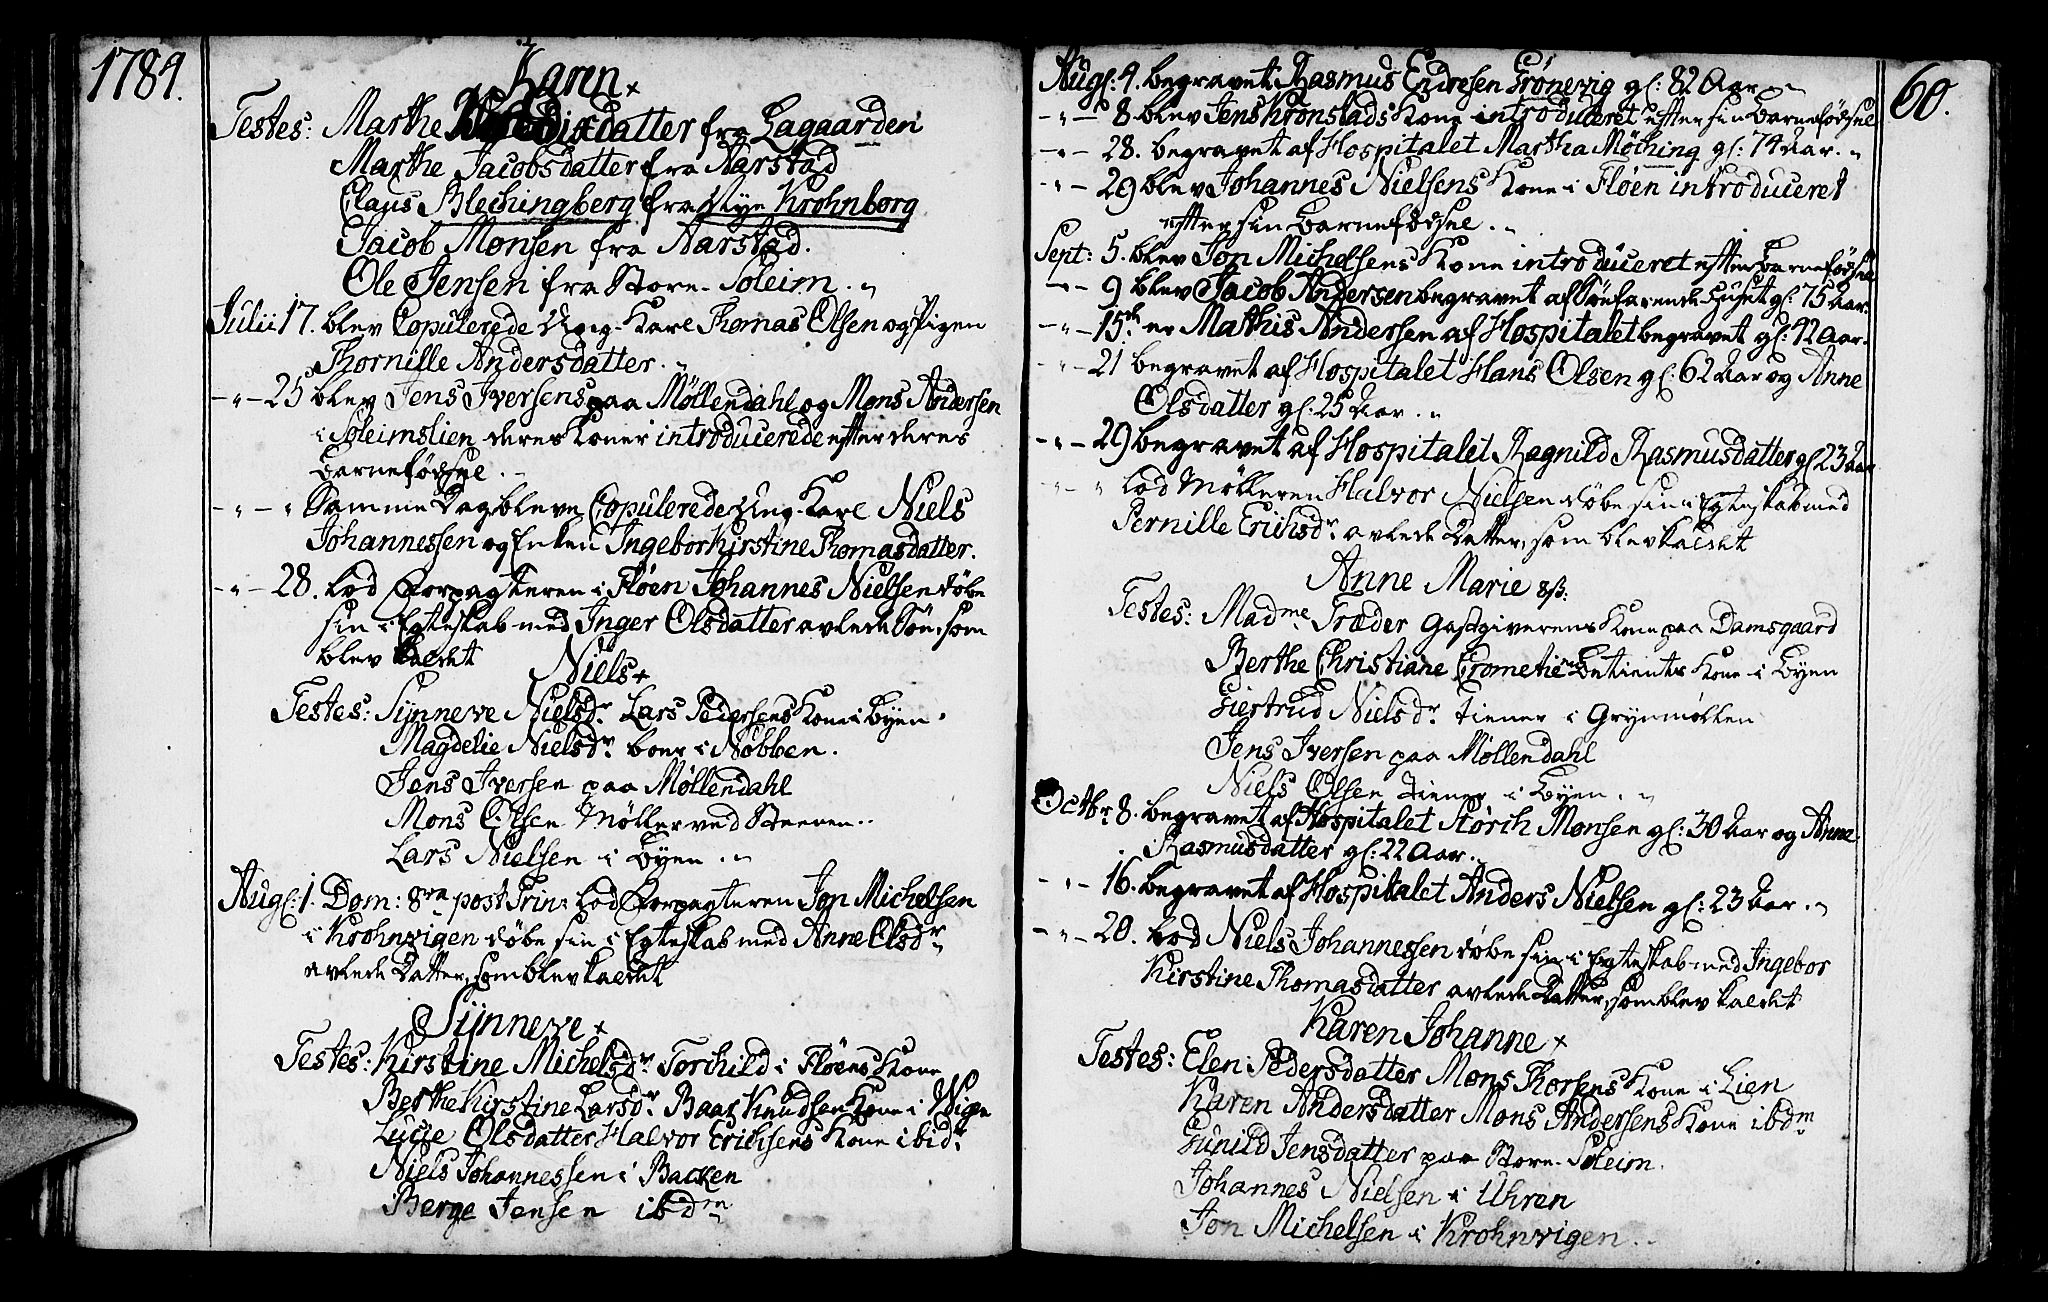 1784.
Karen +
Testes: Marthe datter fra Lagaarden
Marthe Jacobsdatter fra Aarstad
Claus Blechingberg fra Nye Krohnborg
Jacob Monsen fra Aarstad.
Ole Jensen fra Store-Soleim.
Julii 17. blev Copulerede Ung-Karl Thomas Olsen og Pigen
Thornille Andersdatter.
-"- 25 blev Jens Iversens paa Møllendahl og Mons Andersen
i Soleimslien deres Koner introducerede efter deres
Barnefødsel.
-"-" Samme Dag bleve Copulerede Ung-Karl Niels
Johannessen og Enken Ingebor Kirstine Thomasdatter.
-"- 28. lod Forpagteren i Fløen Johannes Nielsen døbe
sin i Egteskab med Inger Olsdatter avlede Søn, som
blev kaldet
Niels +
Testes: Synneve Nielsdr. Lars Pedersens Kone i Byen.
Magdelie Nielsdr. boer i Nobben.
Jens Iversen paa Møllendahl
Mons Olsen Møller ved Steeren..
Lars Nielsen i Byen.
Aug: 1. Dom: 8va post Trin: lod Forpagteren Jon Michelsen
i Krohnvigen døbe sin i Egteskab med Anne Olsdr.
avlede Datter, som blev kaldet
Synneve +
Testes: Kirstine Michelsdr. Torchild i Fløens Kone
Berthe Kirstine Larsdr. Baar Knudsen Kone i Wigen
Lucie Olsdatter Halvor Erichsens Kone ibidm
Niels Johannessen i Backen
Berge Jensen ibdm
60.
Aug: 4. begravet Rasmus Endresen Grønevig gl: 82 Aar
-"- 8 blev Jens Kronstads Kone introduceret efter sin Barnefødsel
-"- 28. begravet af Hospitalet Martha Møching gl: 74 Aar.
-"- 29 blev Johannes Nielsens Kone i Fløen introduceret
efter sin Barnefødsel.
Sept: 5. blev Jon Michelsens Kone introduceret efter Barnefødsel
-"- 9 blev Jacob Andersen begravet af Søefarende Huset gl: 75 Aar.
-"- 15de er Mathis Andersen af Hospitalet begravet gl: 42 Aar.
-"- 21 begravet af Hospitalet Hans Olsen gl: 62 Aar og Anne
Olsdatter gl: 25 Aar.
-"- 29 begravet af Hospitalet Ragnild Rasmusdatter gl 23 Aar
-"-" lod Mølleren Halvor Nielsen døbe sin i Egteskab med
Pernille Erichsdr. avlede Datter, som blev kaldet
Anne Marie
Testes: Madme Træder Gastgiverens Kone paa Damsgaard
Berthe Christiane Crometie Betients Kone i Byen
Giertrud Nielsdr. tiener i Grynmøllen
Jens Iversen paa Møllendahl
Niels Olsen tiener i Byen.
Octbr 8. begravet af Hospitalet Størch Monsen gl: 30 Aar og Anne
Rasmusdatter gl: 22 Aar.
-"- 16. begravet af Hospitalet Anders Nielsen gl: 23 Aar.
-"- 20. lod Niels Johannessen døbe sin i Egteskab med Ingebor
Kirstine Thomasdatter avlede Datter, som blev kaldet
Karen Johanne +
Testes: Elen Pedersdatter Mons Thorsens Kone i Lien
Karen Andersdatter Mons Andersens Kone ibdm
Gunild Jensdatter paa Store-Soleim.
Johannes Nielsen i Uhren
Jon Michelsen i Krohnvigen.